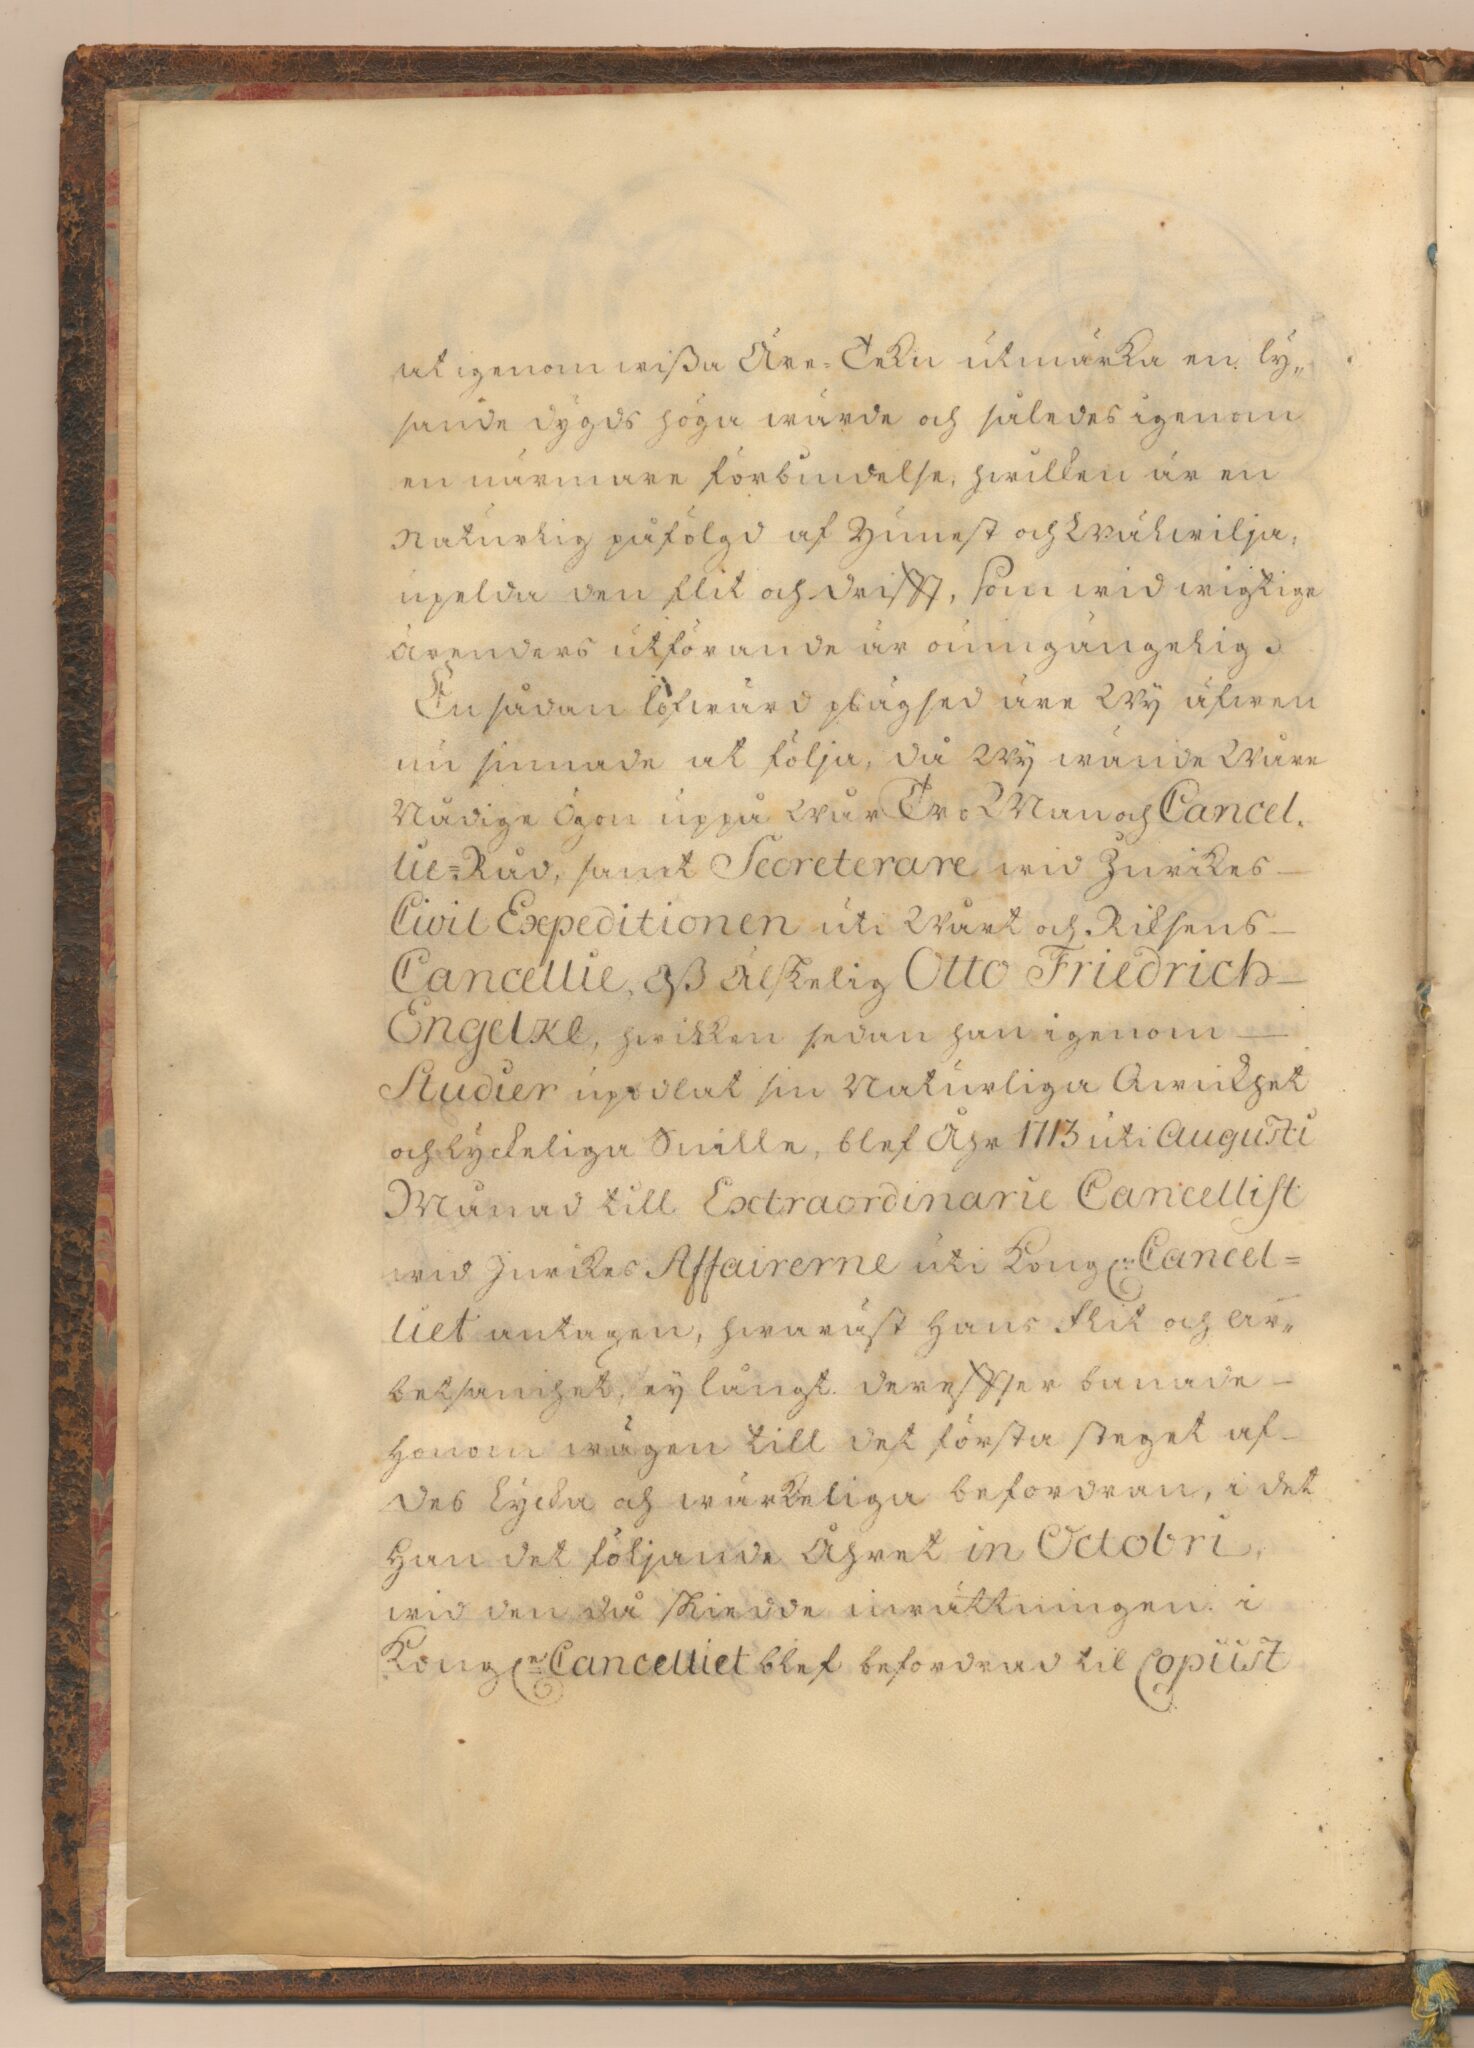 at igenom wißa Äre-Tekn utmärka en ly„
sande dygds höga wärde och således igenom
en närmare förbindelse, hwilken är en
Naturlig påfölgd af Ynnest och Wälwilja,
upelda den flit och drifft, som wid wigtige
ärenders utförande är oumgängelig.
En sådan lofwärd plägsed äre Wy äfwen
nu sinnade at följa, då Wy wände Wåre
Nådige Ögon uppå Wår Tro Man och Cancel„
lie-Råd, samt Secreterare wid Inrikes
Civil Expeditionen uti Wårt och Riksens
Cancellie, oß älskelig Otto Friedrich
Engelke, hwilken sedan han igenom
Studier upodlat sin Naturliga Qwickhet
och lyckeliga Snille, blef Åhr 1713 uti Augusti
Månad till Extraordinarie Cancellist
wid Inrikes Affairerne uti Kongl:e Cancel=
liet antagen, hwaräst Hans flit och ar„
betsamhet, ey långt dereffter banade
Honom wägen till det första steget af
des lycka och wärkeliga befordran, i det
Han det följande Åhret in Octobri,
wid den då skiedde inrättningen i
Kongl:e Cancelliet blef befordrad til Copiist